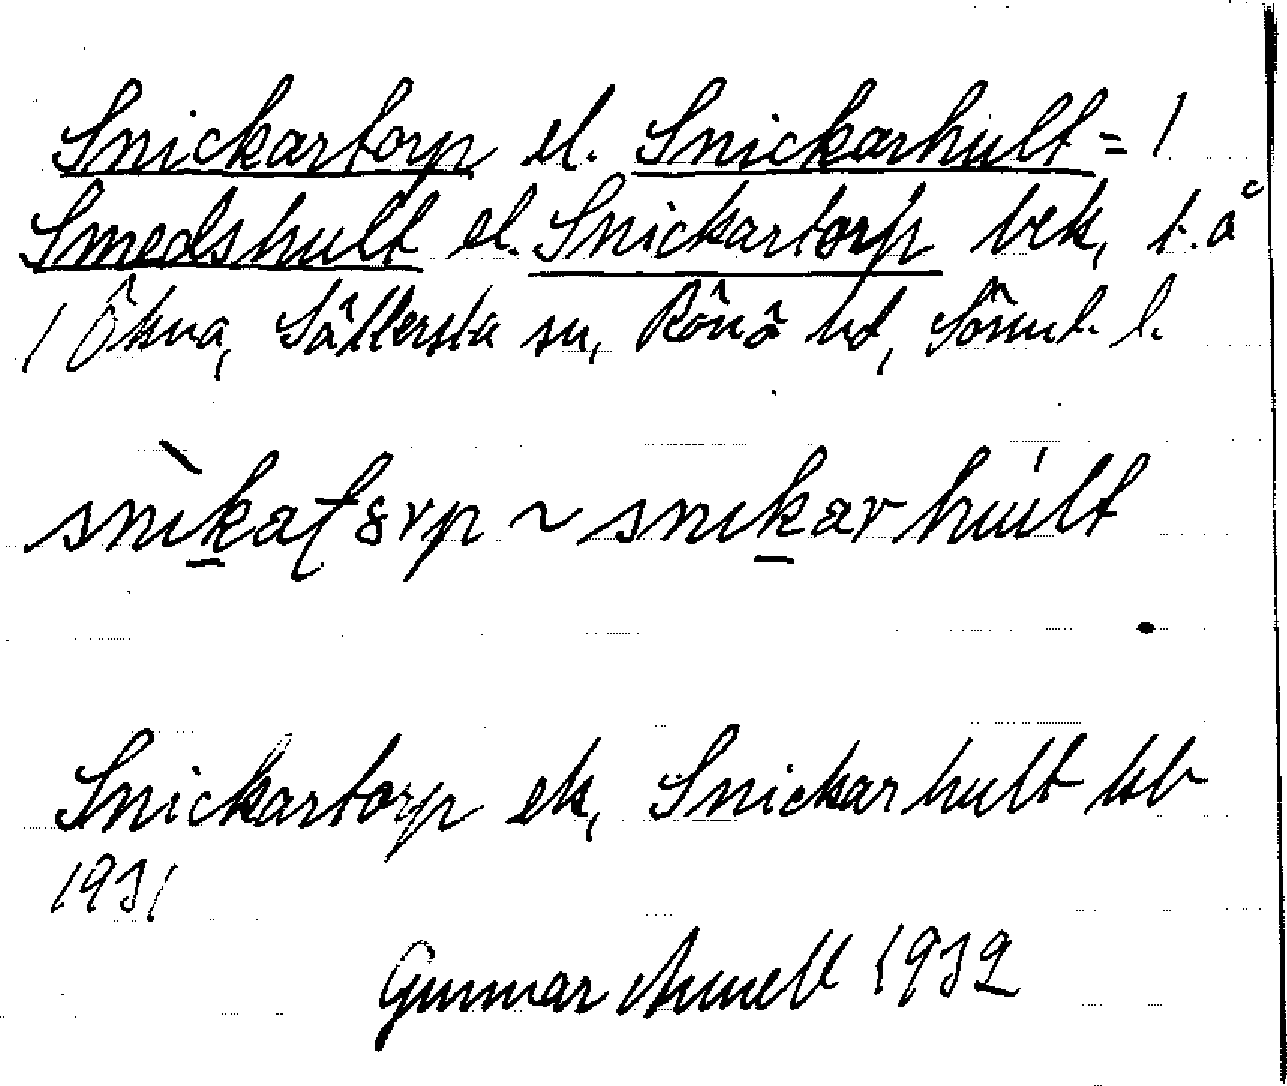 Snickartorp el. Snickarhult = 1
Smedshult el. Snickartorp bek, t.å
1 Ökna, Sättersta sn, Rönö hd, Sörml. l.
snìkaʈ8rp ~ snikarhúlt
Snickartorp ek, Snickarhult kb
1931
Gunnar Arnell 1932